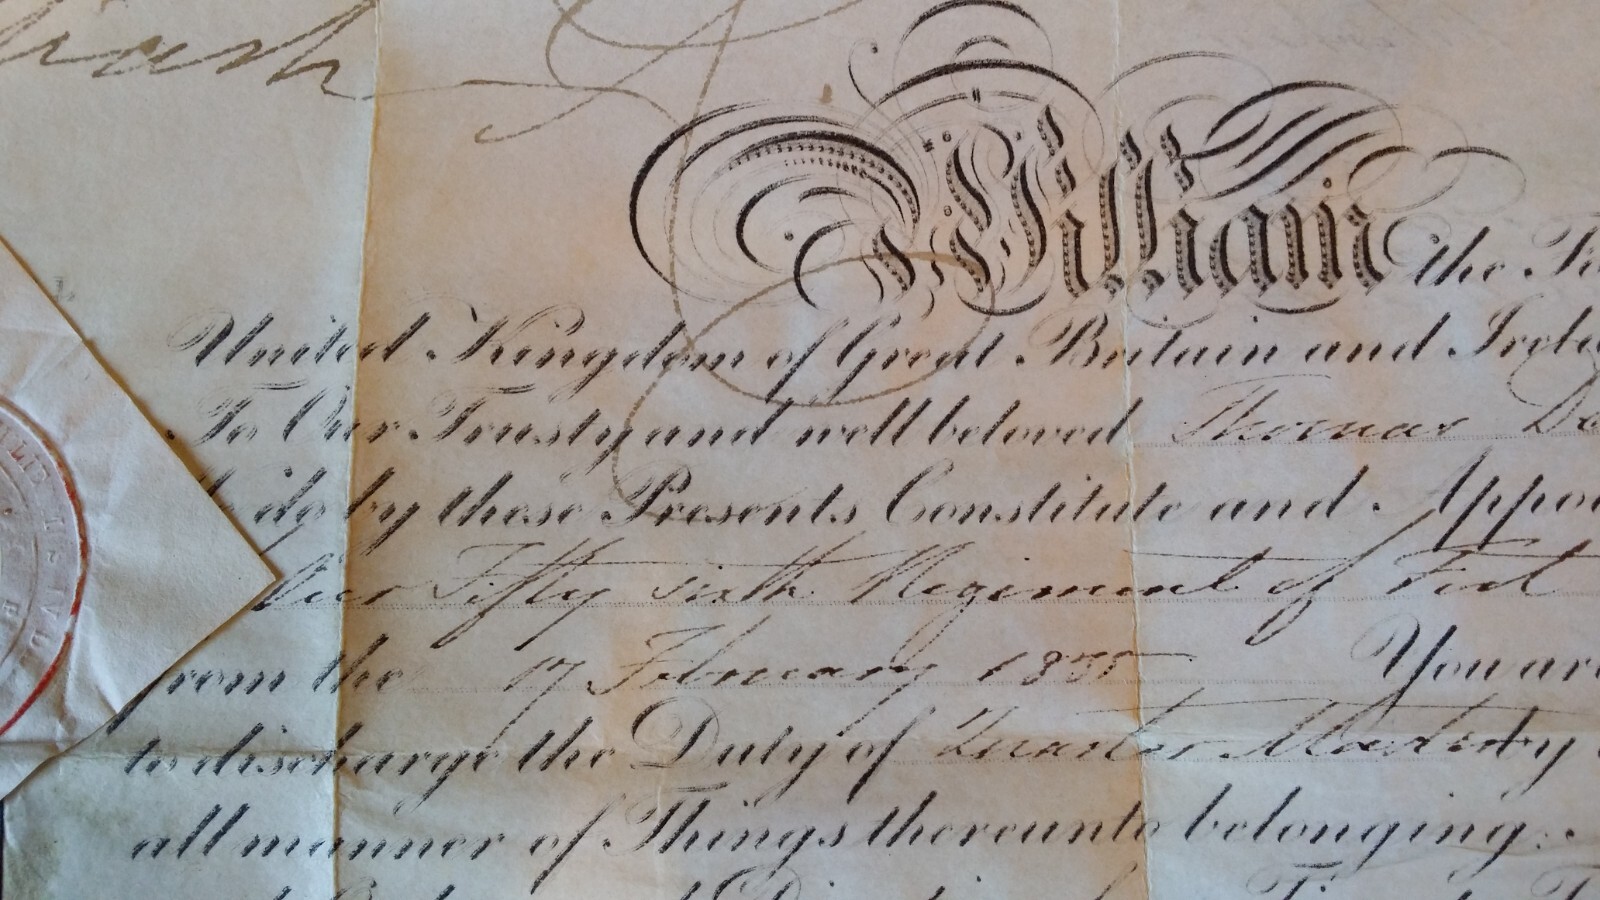 William the
United Kingdom of Great Britain and
To Our Trusty and well beloved Thomas
do by these Presents Constitute and
Our Fifty sixth Regiment of Foot
from the 17 February 1835 You
to discharge the Duty of Quarter Master by
all manner of Things thereunto belonging.